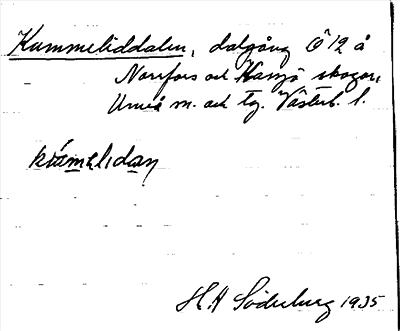 Kummeliddalen, dalgång Ö 12 å
Norrfors och Hamsjö skogar,
Umeå m. och tg. Västerb. l.
kúmelidaɳ
H. A Söderberg 1935